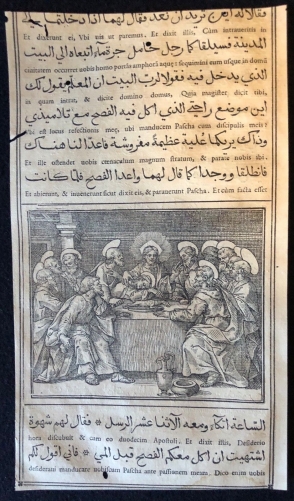 فقالا له اين تريد ان نعد فقال لهما اذا دخلتما
Et dixerunt ei, Vbi vis ut paremus. Et dixit illis, Cùm intraueritis in
المدينة فسيلقاكما رجل حامل جرة ماء اتبعاه الى البيت
ciuitatem occurret uobis homo portans amphorā aquę: sequimini eum usque in domū
الذي يدخل فيه فقولا لرب البيت ان المعلم يقول لك
in quam intrat, & dicite domino domus, Quia magister dicit tibi,
اين موضع راحتي الذي اكل فيه الفصح مع تلاميذي
est locus refectionis meę, ubi manducem Pascha cum discipulis meis:
وذاك يريكما علية عظيمة مفروشة فاعدا لنا هناك
Et ille ostendet uobis cœnaculum magnum stratum, & parate nobis ibi.
فانطلقا ووجدا كما قال لهما واعدا الفصح فلما كانت
Et abierunt, & inuenerunt sicut dixit eis, & parauerunt Pascha. Et cùm facta esset
الساعة اتكأ ومعه الاثنا عشر الرسل * فقال لهم شهوة
hora discubuit & cum eo duodecim Apostoli. Et dixit illis, Desiderio
اشتهيت ان اكل معكم الفصح قبل المي * فاني اقول لكم
desideraui manducare uobiscum Pascha ante passionem meam. Dico enim uobis